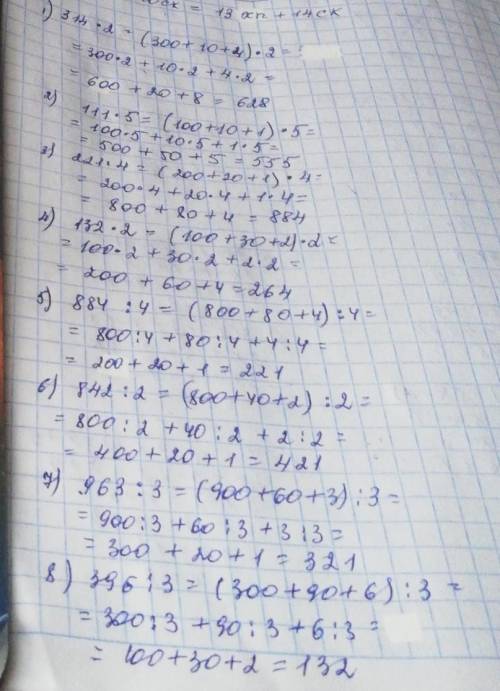 = 13 xn + 14 ck
1) 314 · 2 = (300+10+4) · 2 =
= 300·2 + 10·2 + 4·2 =
= 600 + 20 + 8 = 628
2) 111·5 = (100+10+1) · 5 =
= 100·5 + 10·5 + 1·5 =
= 500 + 50 + 5 = 555
3) 221·4 = (200+20+1) · 4 =
= 200·4 + 20·4 + 1·4 =
= 800 + 80 + 4 = 884
4) 132·2 = (100+30+2)·2 =
= 100·2 + 30·2 + 2·2 =
= 200 + 60 + 4 = 264
5) 884 : 4 = (800+80+4) : 4 =
= 800:4 + 80:4 + 4:4 =
= 200 + 20 + 1 = 221
6) 842 : 2 = (800+40+2) : 2 =
= 800 : 2 + 40 : 2 + 2 : 2 =
= 400 + 20 + 1 = 421
7) 963 : 3 = (900+60+3) : 3 =
= 900:3 + 60:3 + 3:3 =
= 300 + 20 + 1 = 321
8) 396 : 3 = (300+90+6) : 3 =
= 300:3 + 90:3 + 6:3 =
= 100 + 30 + 2 = 132